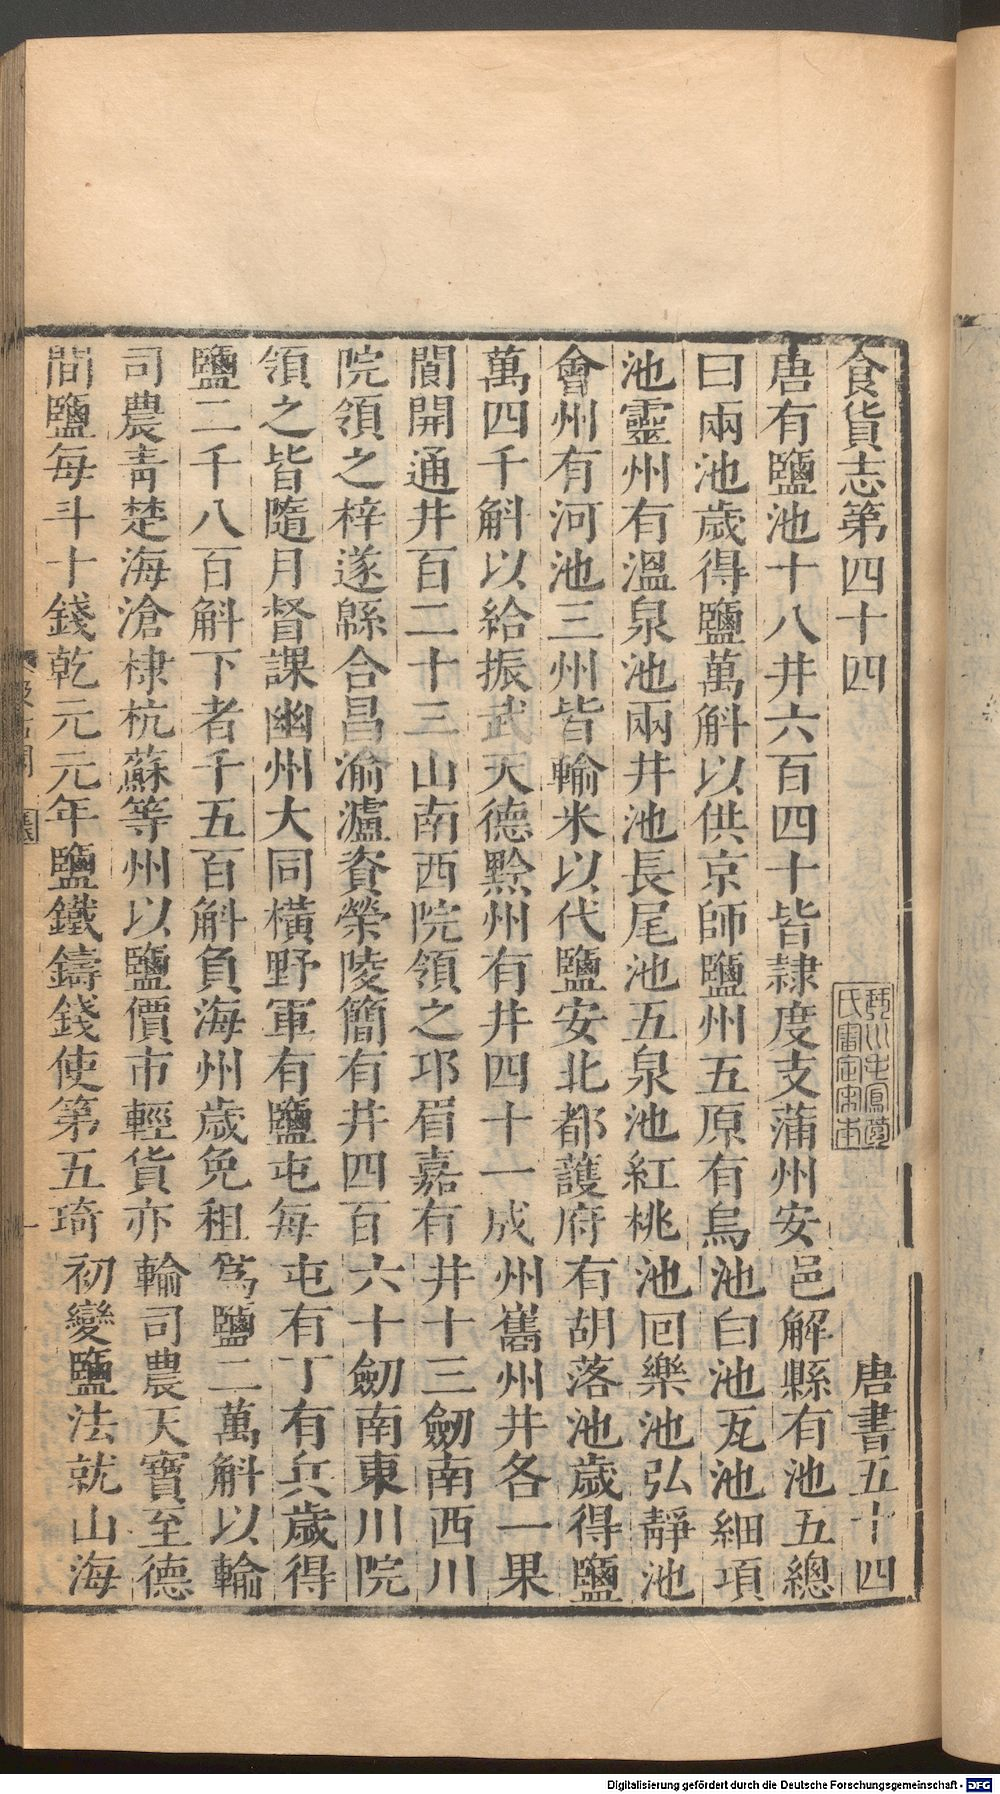 食貨志第四十四　唐書五十四
唐有鹽池十八井六百四十皆隷度支蒲州安邑解縣有池五總
曰兩池歲得鹽萬斛以供京師鹽州五原有烏池白池瓦池細項
池靈州有溫泉池兩井池長尾池五泉池紅桃池回樂池弘靜池
會州有河池三州皆輸米以代鹽安北都護府有胡落池歲得鹽
萬四千斛以給振武天德黔州有井四十一成州嶲州井各一果
閬開通井百二十三山南西院領之邛眉嘉有井十三劒南西川
院領之梓遂緜合昌渝瀘資榮陵簡有井四百六十劒南東川院
領之皆隨月督課幽州大同橫野軍有鹽屯每屯有丁有兵歲得
鹽二千八百斛下者千五百斛負海州歲免租爲鹽二萬斛以輸
司農靑楚海滄棣杭蘇等州以鹽價市輕貨亦輸司農天寶至德
間鹽每斗十錢乾元元年鹽鐵鑄錢使第五琦初變鹽法就山海
Digitalisierung gefördert durch die Deutsche Forschungsgemeinschaft - DFG